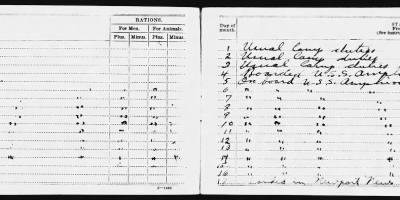 RATIONS.
For Men. For Animals.
Plus. Minus. Plus. Minus.
Day of month.
1 Usual Camp duties
2 Usual Camp duties
3 Usual Camp duties
4 Boarded U.S.S.
5 On board U.S.S.
6 " " "
7 " " "
8 " " "
9 " " "
10 " " "
11 " " "
12 " " "
13 " " "
14 " " "
15 " " "
16 " " "
17 Landed in Newport News